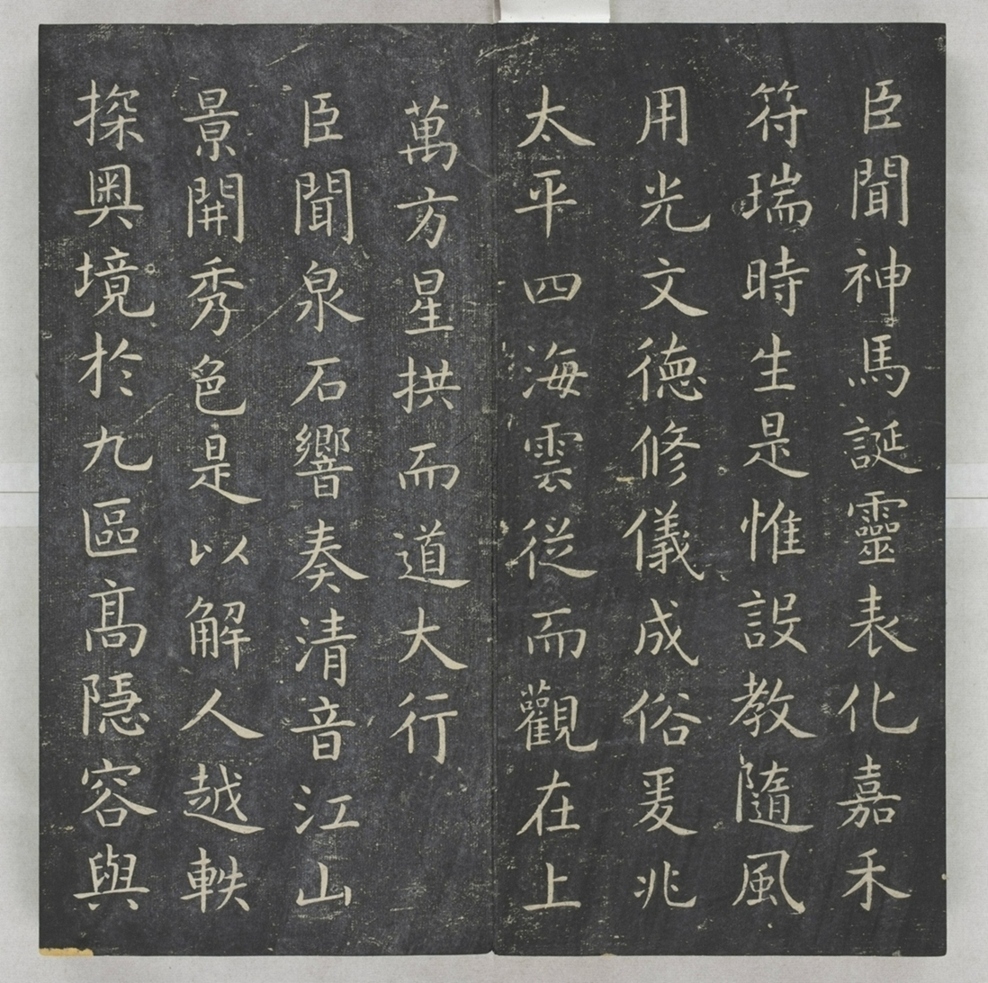 臣聞神馬誕靈表化嘉禾
符瑞時生是惟設教隨風
用光文德修儀成俗爰兆
太平四海雲従而觀在上
萬方星拱而道大行
臣聞泉石響奏清音江山
景開秀色是以解人越軼
探奧境於九區髙隱容與